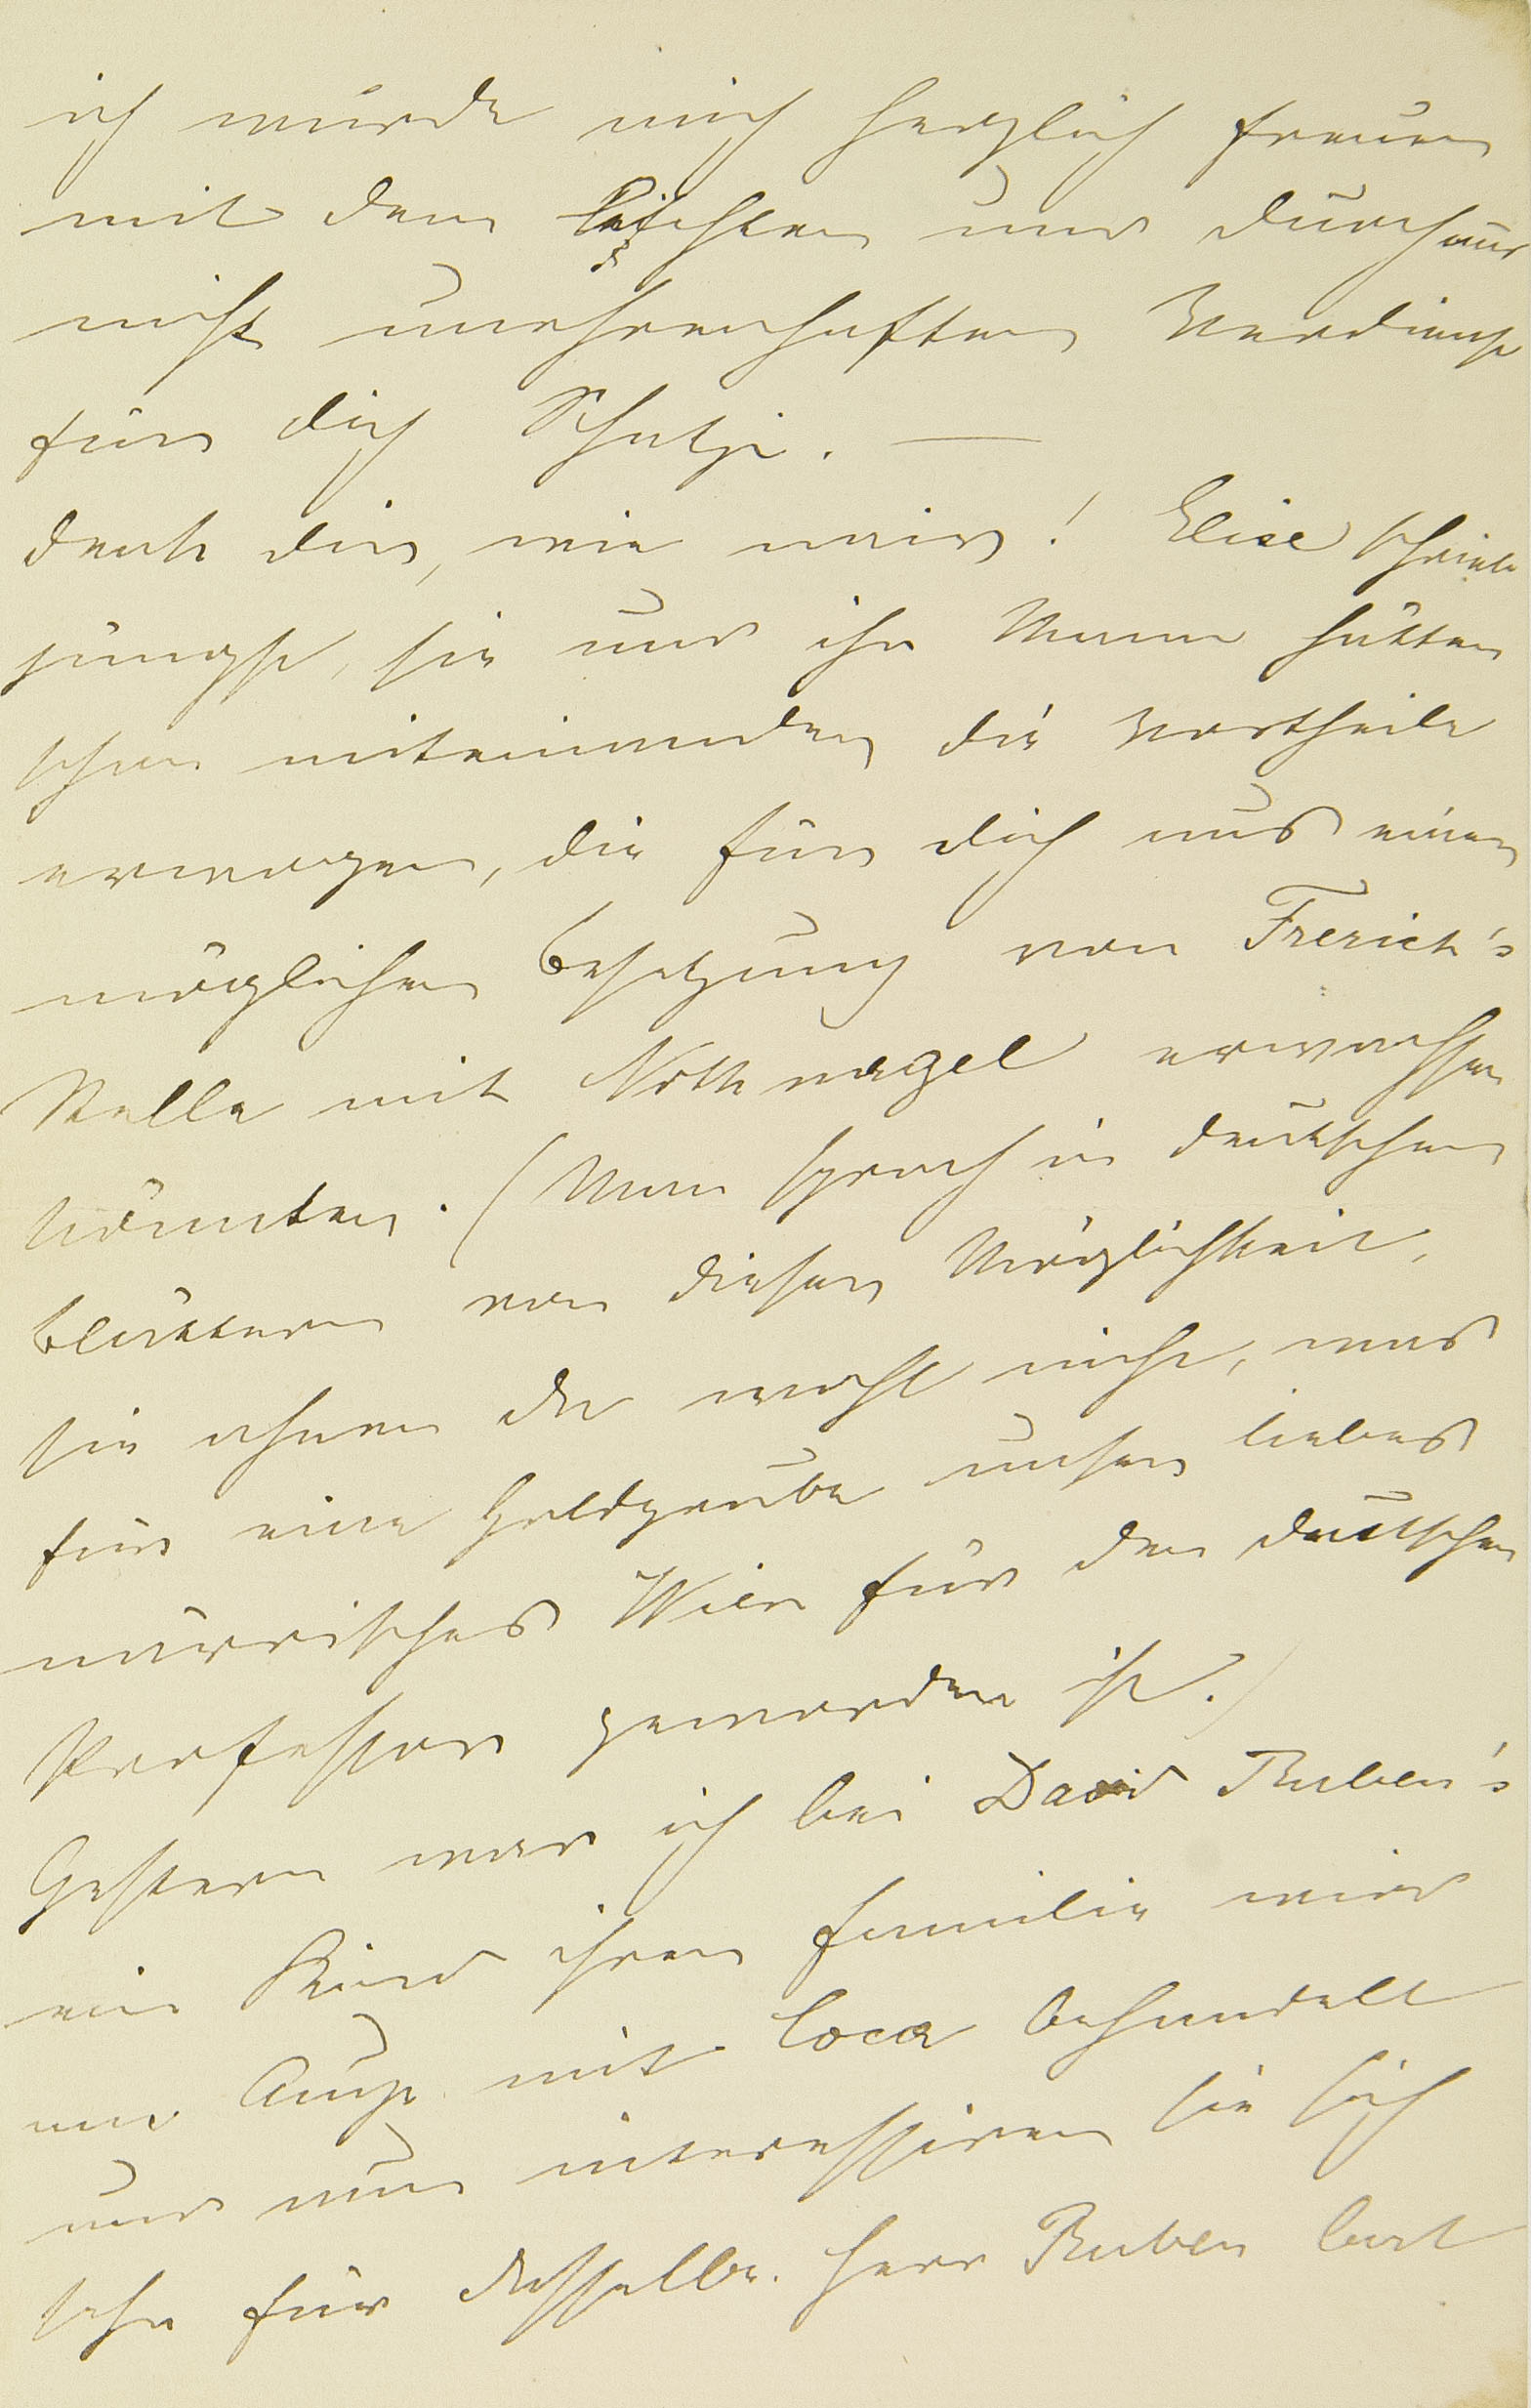 ich würde mich herzlich freuen
mit dem leichten und durchaus
nicht unehrenhaften Verdienst
für dich Schatzi. —
denk dir, wie mir! Elise schrieb
jüngst, sie und ihr Mann hätten
schon miteinander die Vortheile
erwogen, die für dich aus einer
möglichen Besetzung von Frerich's
Stelle mit Nothnagel erwachsen
könnten. (Man sprach in deutschen
Blättern von dieser Möglichkeit,
sie ahnen da wohl nicht, was
für eine Goldgrube unser liebes
närrisches Wien für den deutschen
Professor geworden ist.)
Gestern war ich bei David Ruben's
ein Kind ihrer Familie wird
am Auge mit Coca behandelt
und nun interessiren sie sich
sehr für dasselbe. Herr Ruben bat